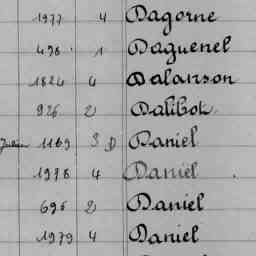 1977 4 Dagorne
498 1 Daguenel
1824 4 Dalanson
926 2 Dalibot
1169 3 D Daniel
1978 4 Daniel
696 2 Daniel
1979 4 Daniel